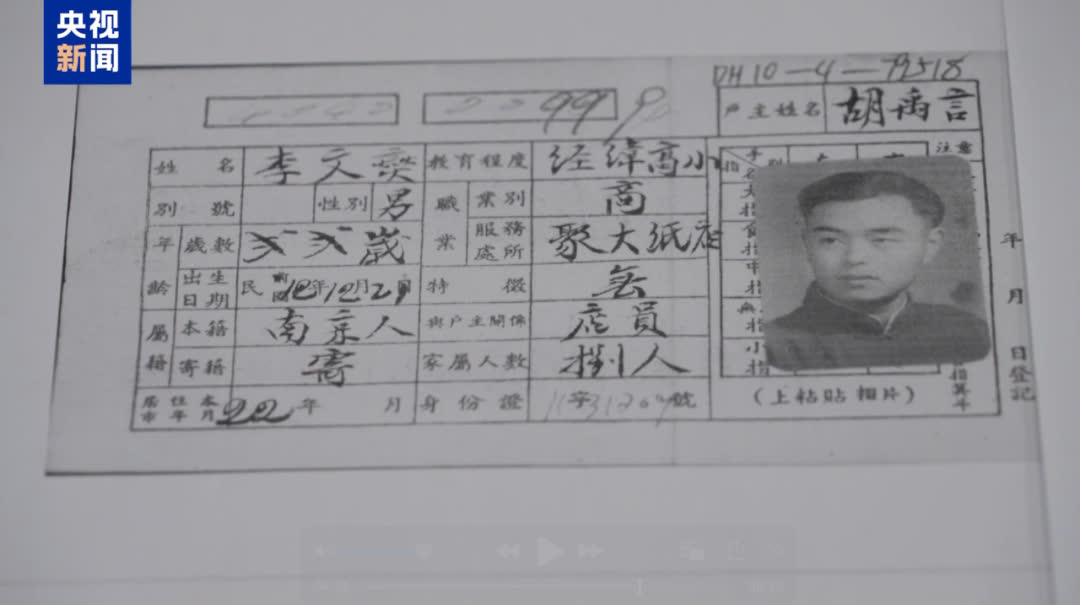 央视
新闻
DH10-4-79518
户主姓名 胡禹言
姓名 李文奕 教育程度 经纬高小
別號 性別 男 職業 業別 商
年齡 歲數 弍弍歲 服務處所 聚大纸店
出生日期 民前12年12月2日 特徵 無
屬籍 本籍 南京人 與戶主關係 店員
寄籍 寄 家屬人數 捌人
居住本市年月 22年 月 身份證 字 號
注意
(上粘貼相片)
年月日登記